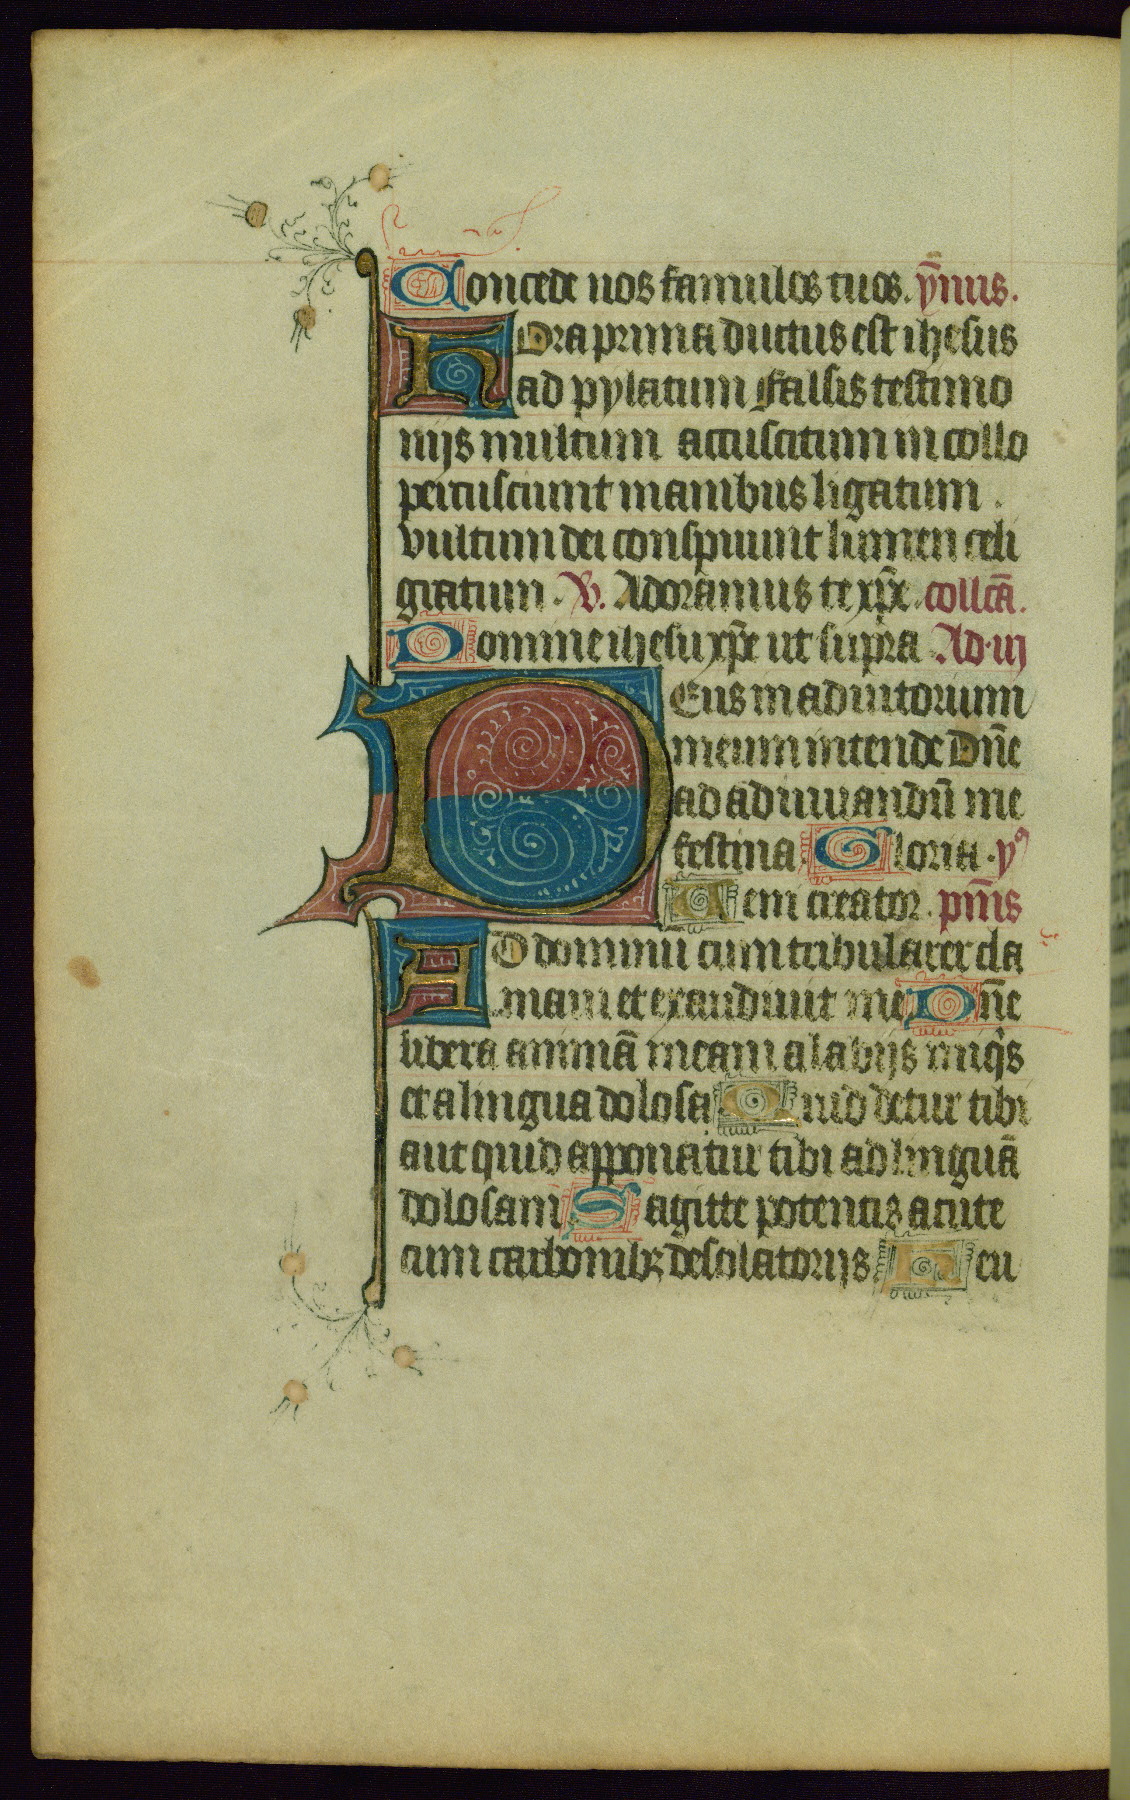 Concede nos famulos tuos. ymus.
Hora prima ductus est ihesus
ad pylatum Falsis testimo
nijs multum accuscitum in collo
percuscunt manibus ligatum.
vultum dei conspuunt lumen celi
gratum. V. Adoramus te xpe. collca.
Domine ihesu xpe ut supra Ad. iij
Deus in adiutorium
meum intende Dne
ad adiuuandu me
festina Gloria. y⁹
Veni creator. pmis
AD dominu cum tribularer cla
maui et exaudiuit me Dne
libera animā meam a labijs iniqis
et a lingua dolosa Quid detur tibi
aut quid apponatur tibi ad linguā
dolosam Sagitte potentis acute
cum carbonibꝫ desolatorijs Heu